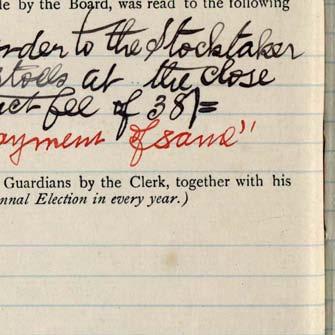 le by the Board, was read to the following
order to the Stocktaker
stocks at the close
act fee of 38/=
ayment of same"
Guardians by the Clerk, together with his
nnal Election in every year.)